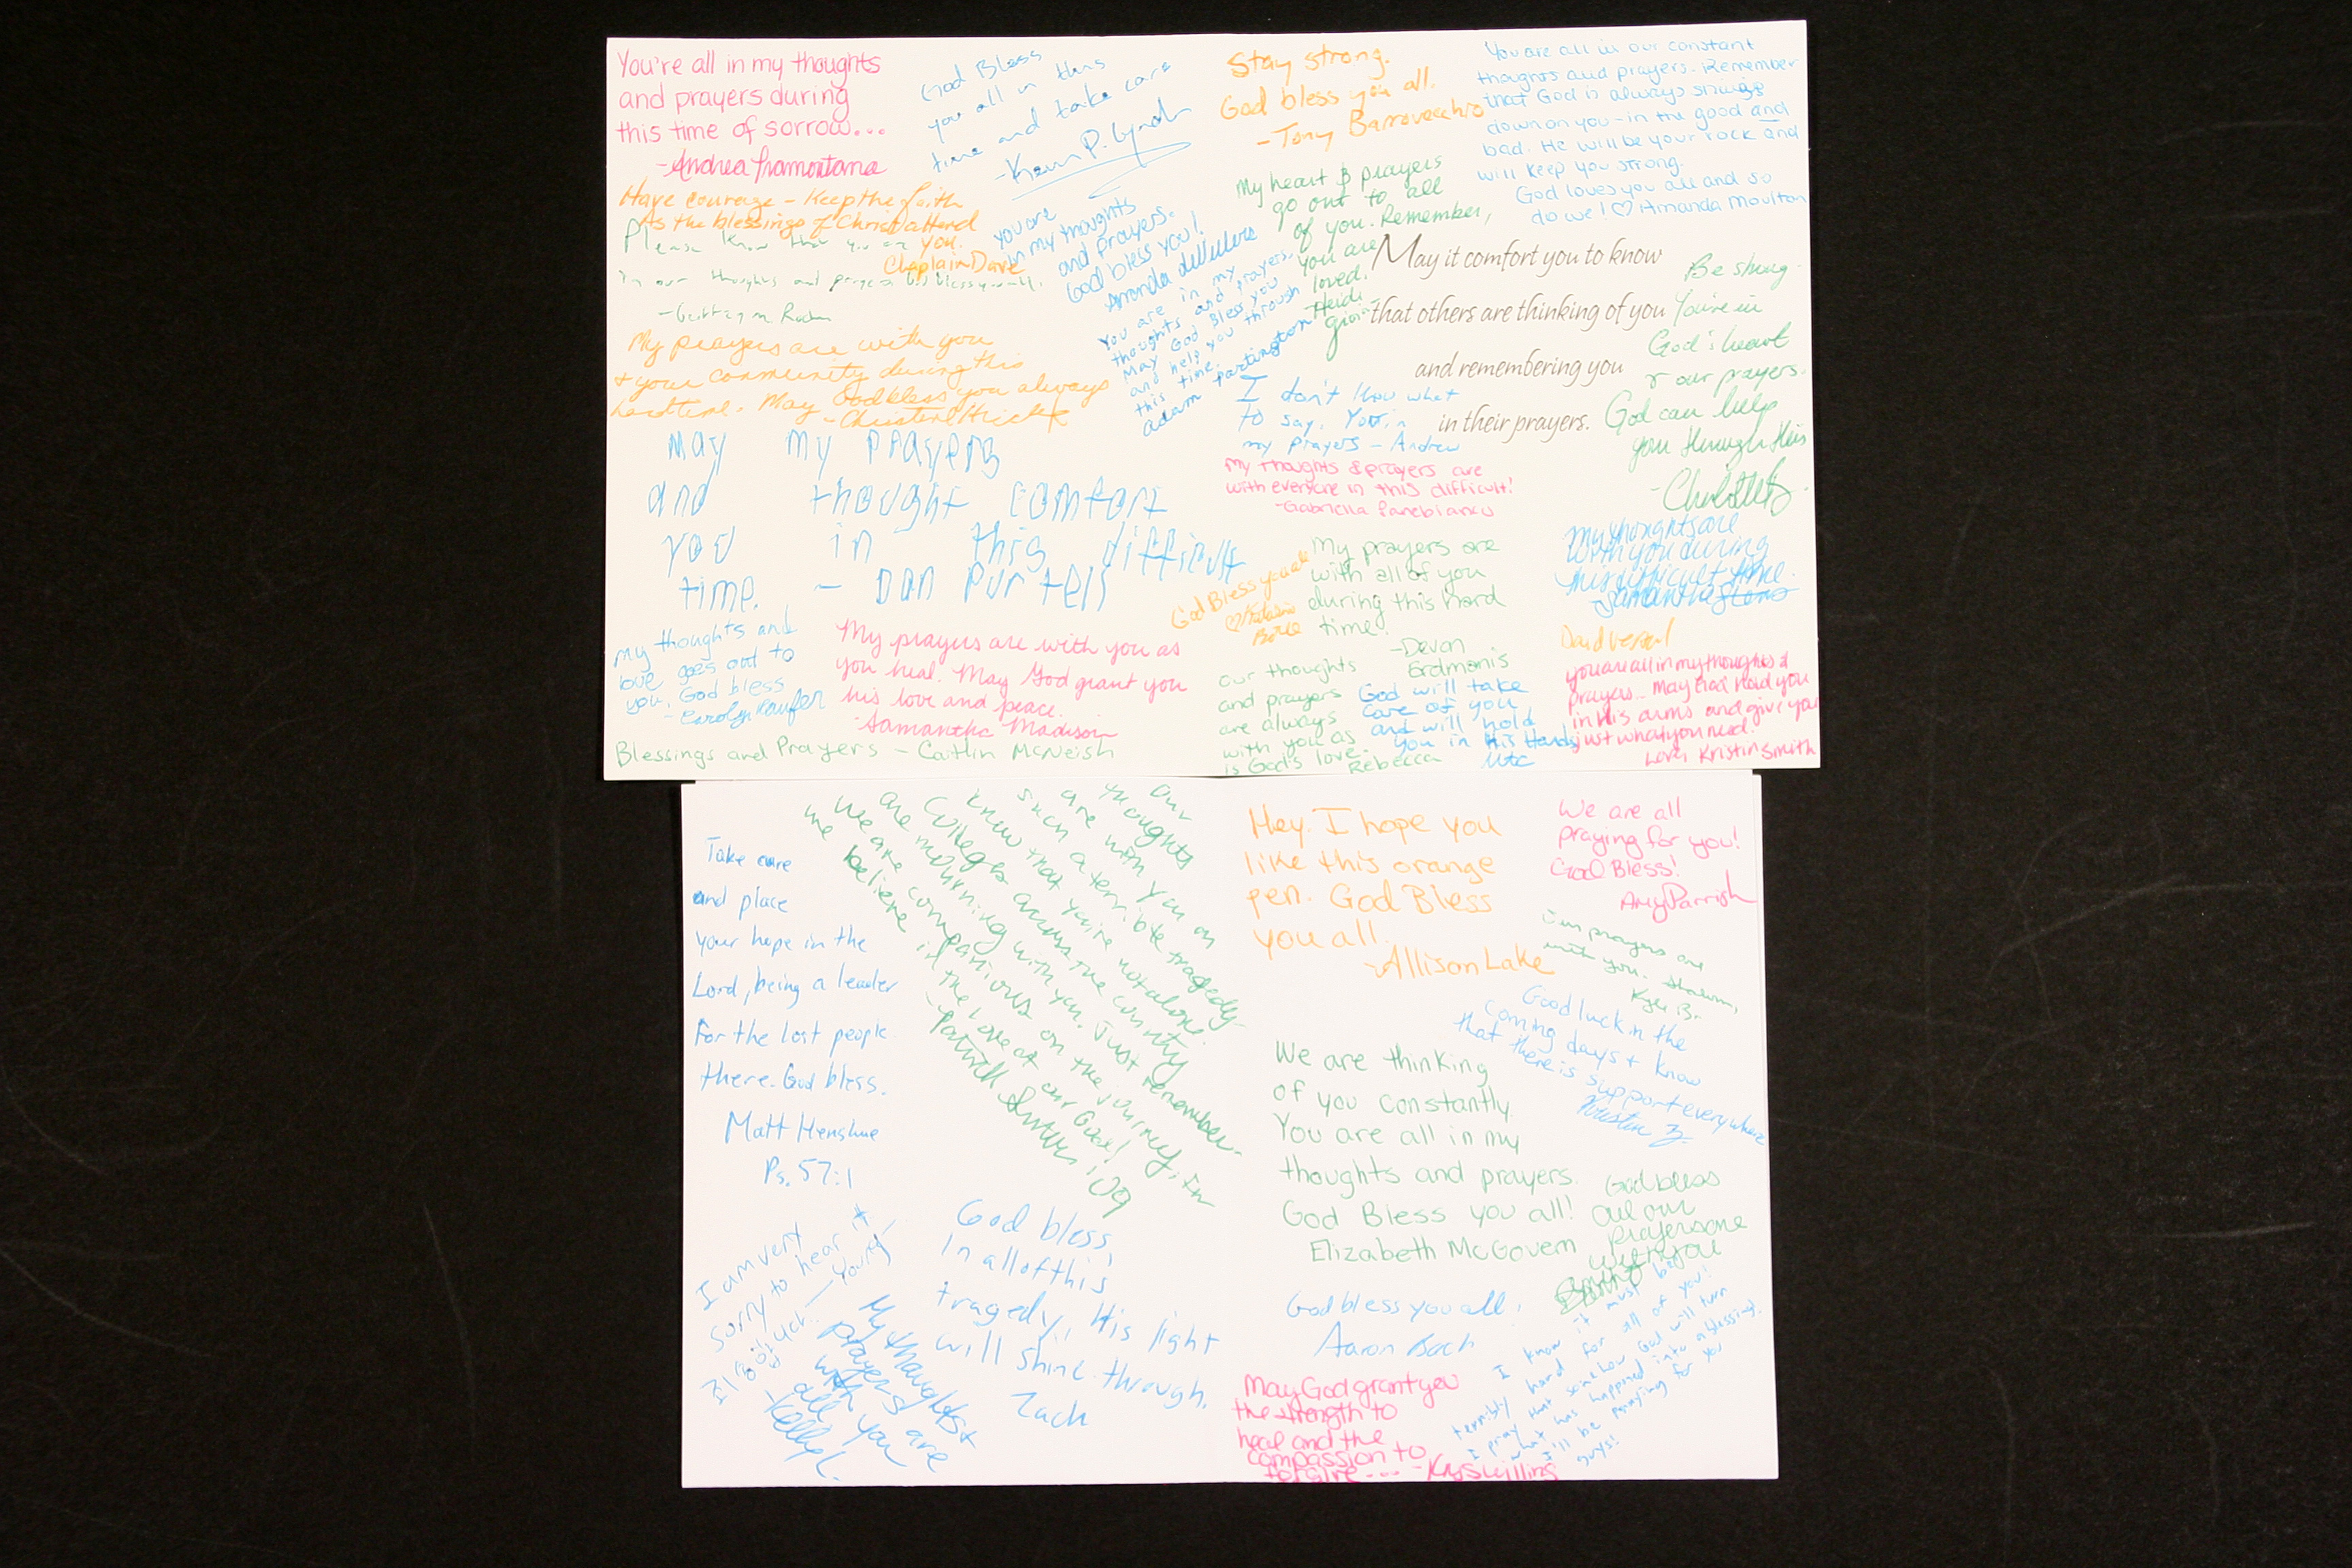 You're all in my thoughts
and prayers during
this time of sorrow...
-Andrea Tramontana
God Bless
you all in this
time and take care
-Kevin P. Lynch
Have courage - Keep the faith
As the blessings of Christ attend
you.
Chaplain Dave
Please know that you are
in our thoughts and prayers God bless you all.
you are
in my thoughts
and prayers.
God bless you!
Amanda
You are in my
thoughts and prayers.
May God Bless you
and help you through
this time.
adam partington
My prayers are with you
+ your community during this
hard time. May God bless you always
May my prayers
and thought comfort
you in this difficult
time. - Dan Purtell
my thoughts and
love goes out to
you, God bless
- Carolyn Kaufer
My prayers are with you as
you heal. May God grant you
his love and peace.
-Samantha Madison
Blessings and Prayers - Caitlin McNeish
Stay strong.
God bless you all.
-Tony Barrovecchio
You are all in our constant
thoughts and prayers. Remember
that God is always shining
down on you-in the good and
bad. He will be your rock and
will keep you strong.
God loves you all and so
do we! ♡ Amanda Moulton
My heart & prayers
go out to all
of you. Remember,
you are
loved.
-Heidi
May it comfort you to know
that others are thinking of you
and remembering you
in their prayers.
Be strong.
You're in
God's heart
& our prayers.
God can help
you through this
I don't know what
to say. You're in
my prayers - Andrew
My thoughts & prayers are
with everyone in this difficult!
-Gabriella Panebianco
God Bless you all
My prayers are
with all of you
during this hard
time!
-Devon
Erdmanis
My thoughts are
with you during
this difficult time.
-Samantha
our thoughts
and prayers
are always
with you as
is God's love.
Rebecca
God will take
care of you
and will hold
you in His Hands
you are all in my thoughts &
prayers... May God hold you
in His arms and give you
just what you need!
Love, Kristin Smith
Take care
and place
your hope in the
Lord, being a leader
For the lost people
there. God bless.
Matt Henshue
Ps. 57:1
Our
thoughts
are with you on
such a terrible tragedy.
Know that you're not alone.
Colleges across the country
are mourning with you. Just remember
we are companions on the journey, In
we believe in the love of our God!
I am very
sorry to hear it
My thoughts +
prayers are
with you
all
-Kelly L.
God bless,
In all of this
tragedy, His light
will shine through.
Zach
Hey. I hope you
like this orange
pen. God Bless
you all.
-Allison Lake
We are all
praying for you!
God Bless!
Amy Parrish
Our prayers are
with you. Shalom,
Kyle B.
Good luck in the
coming days + know
that there is support everywhere
Kristen Z.
We are thinking
of you constantly.
You are all in my
thoughts and prayers.
God Bless you all!
Elizabeth McGovern
God bless
all our
prayers are
with you
God bless you all!
Aaron Bach
I know it must be
terribly hard for all of you!
I pray that somehow God will turn
what has happened into a blessing.
I'll be praying for you
guys!
May God grant you
the strength to
heal and the
compassion to
forgive....